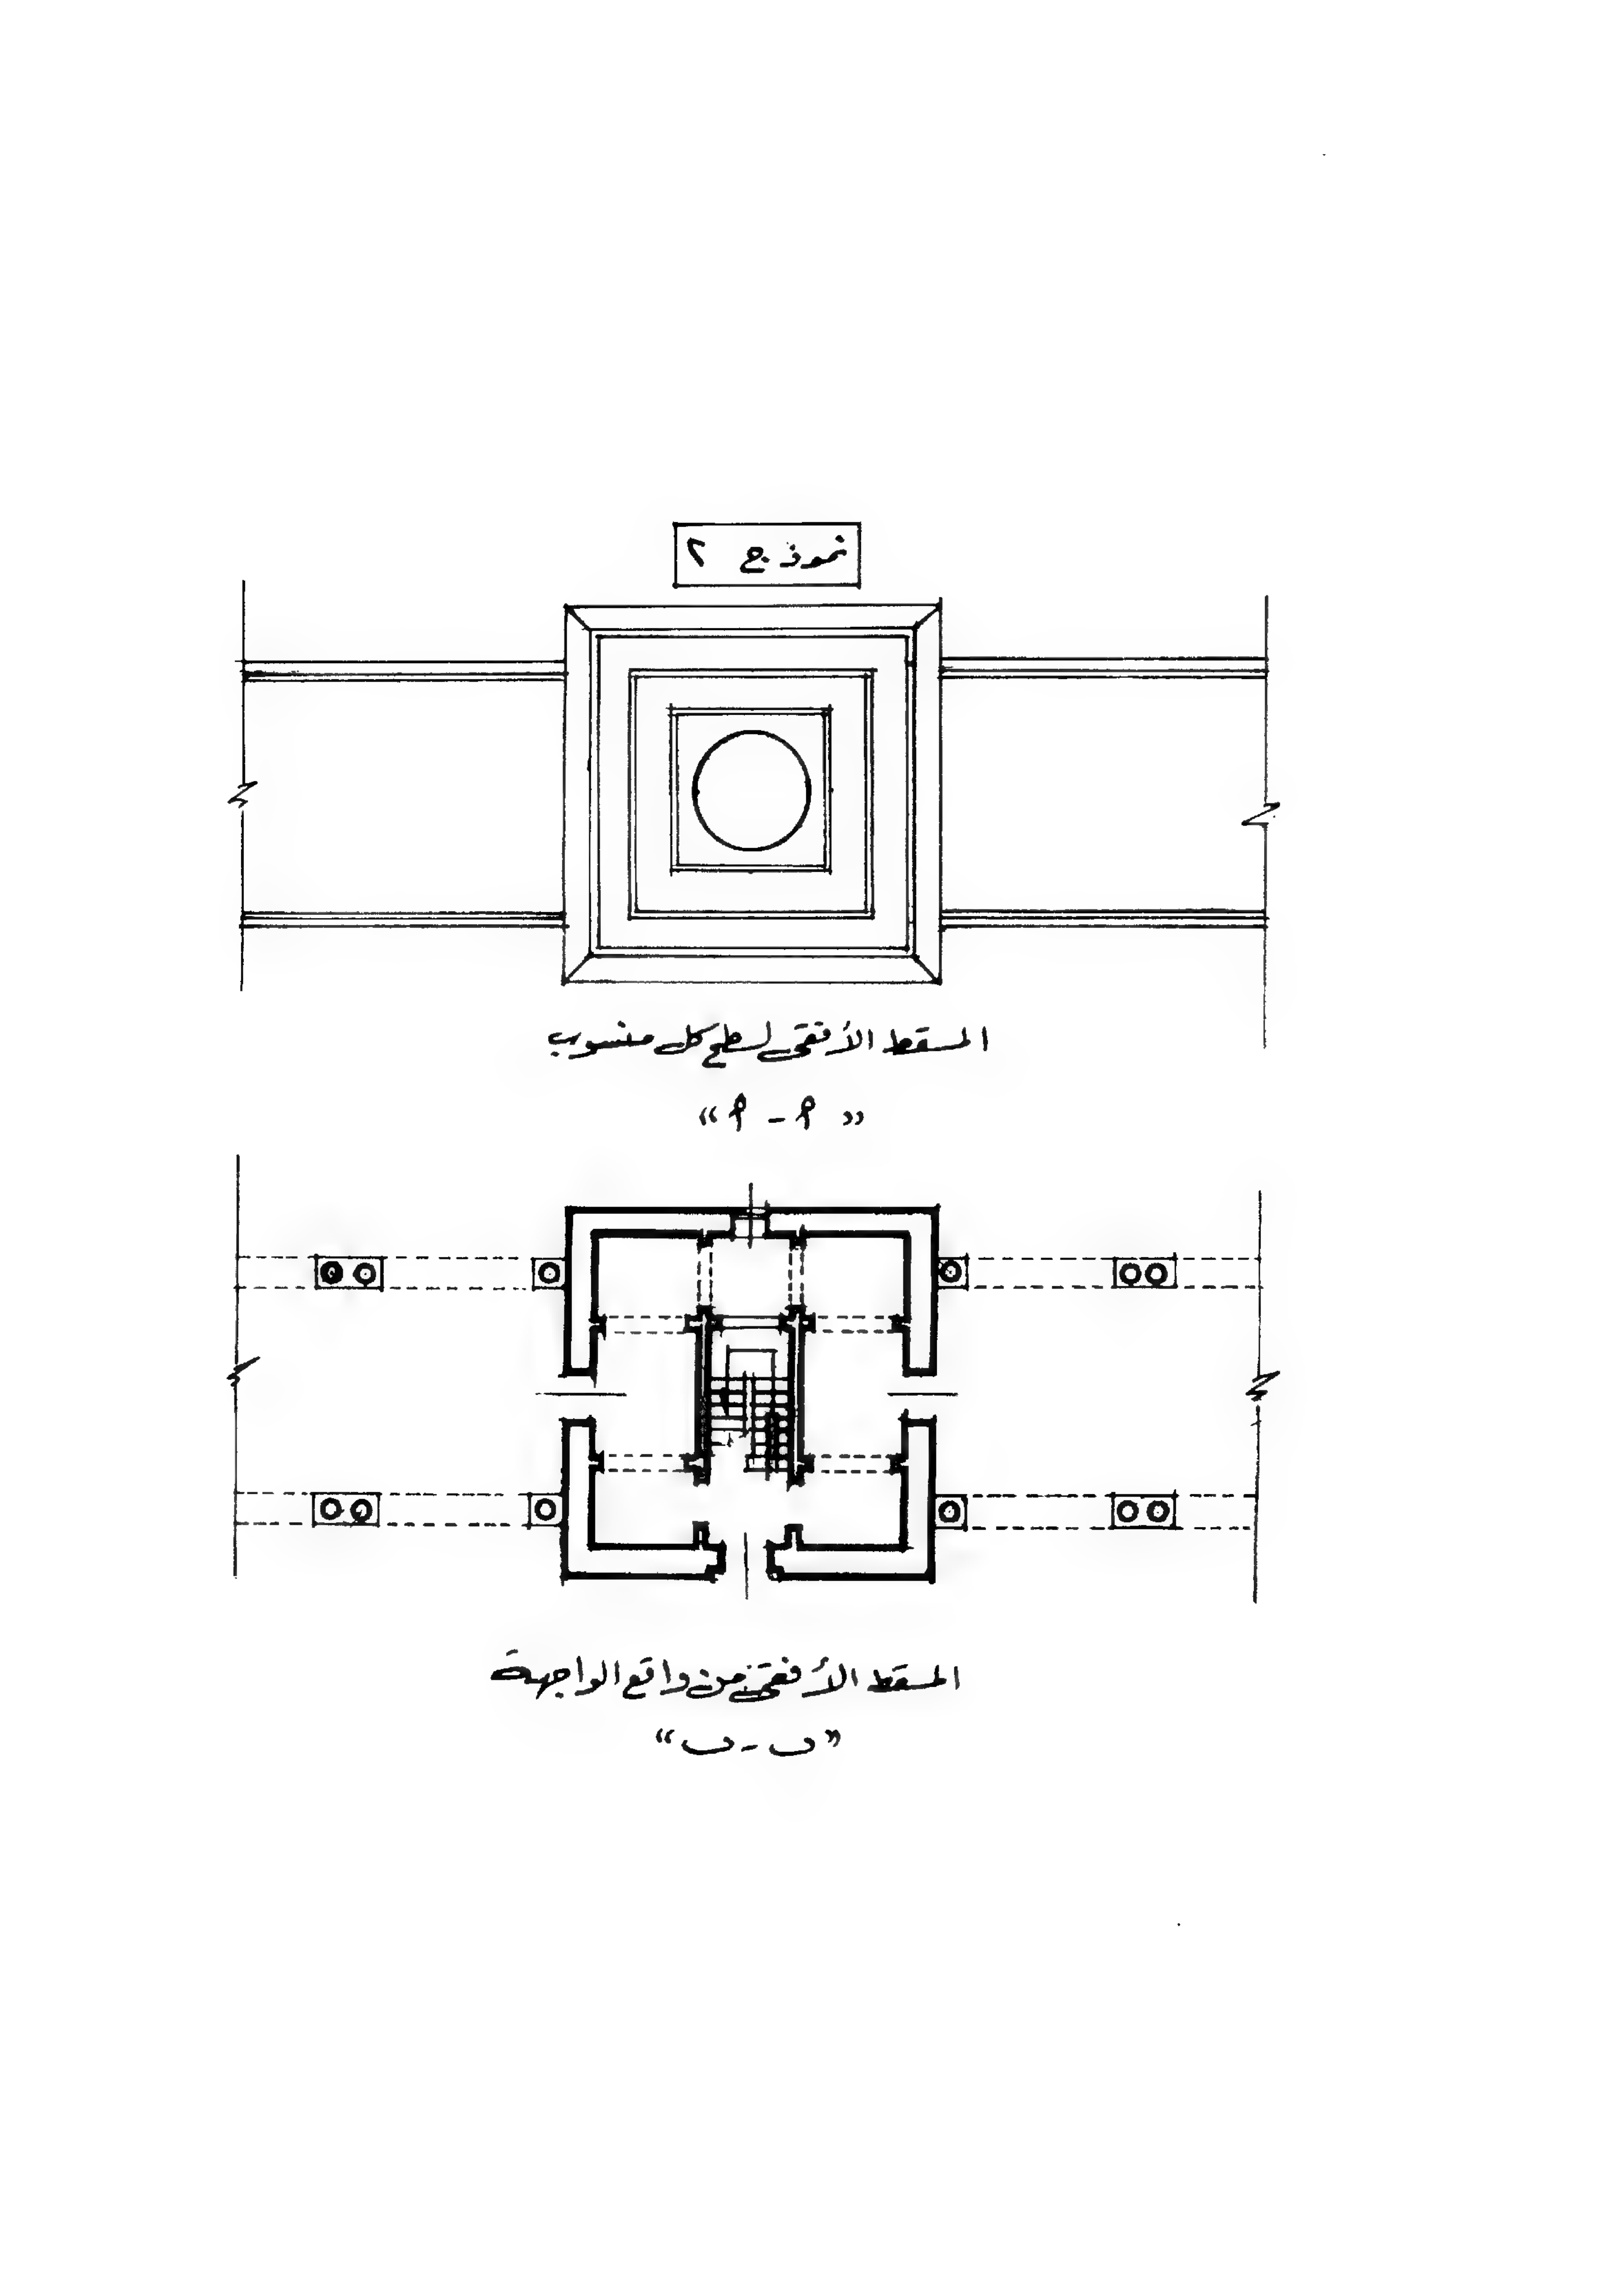 نموذج ٢
المسقط الأفقى لسطح كل منسوب
« ٩ - ٩ »
المسقط الأفقى من واقع الواجهة
"ب - ب"